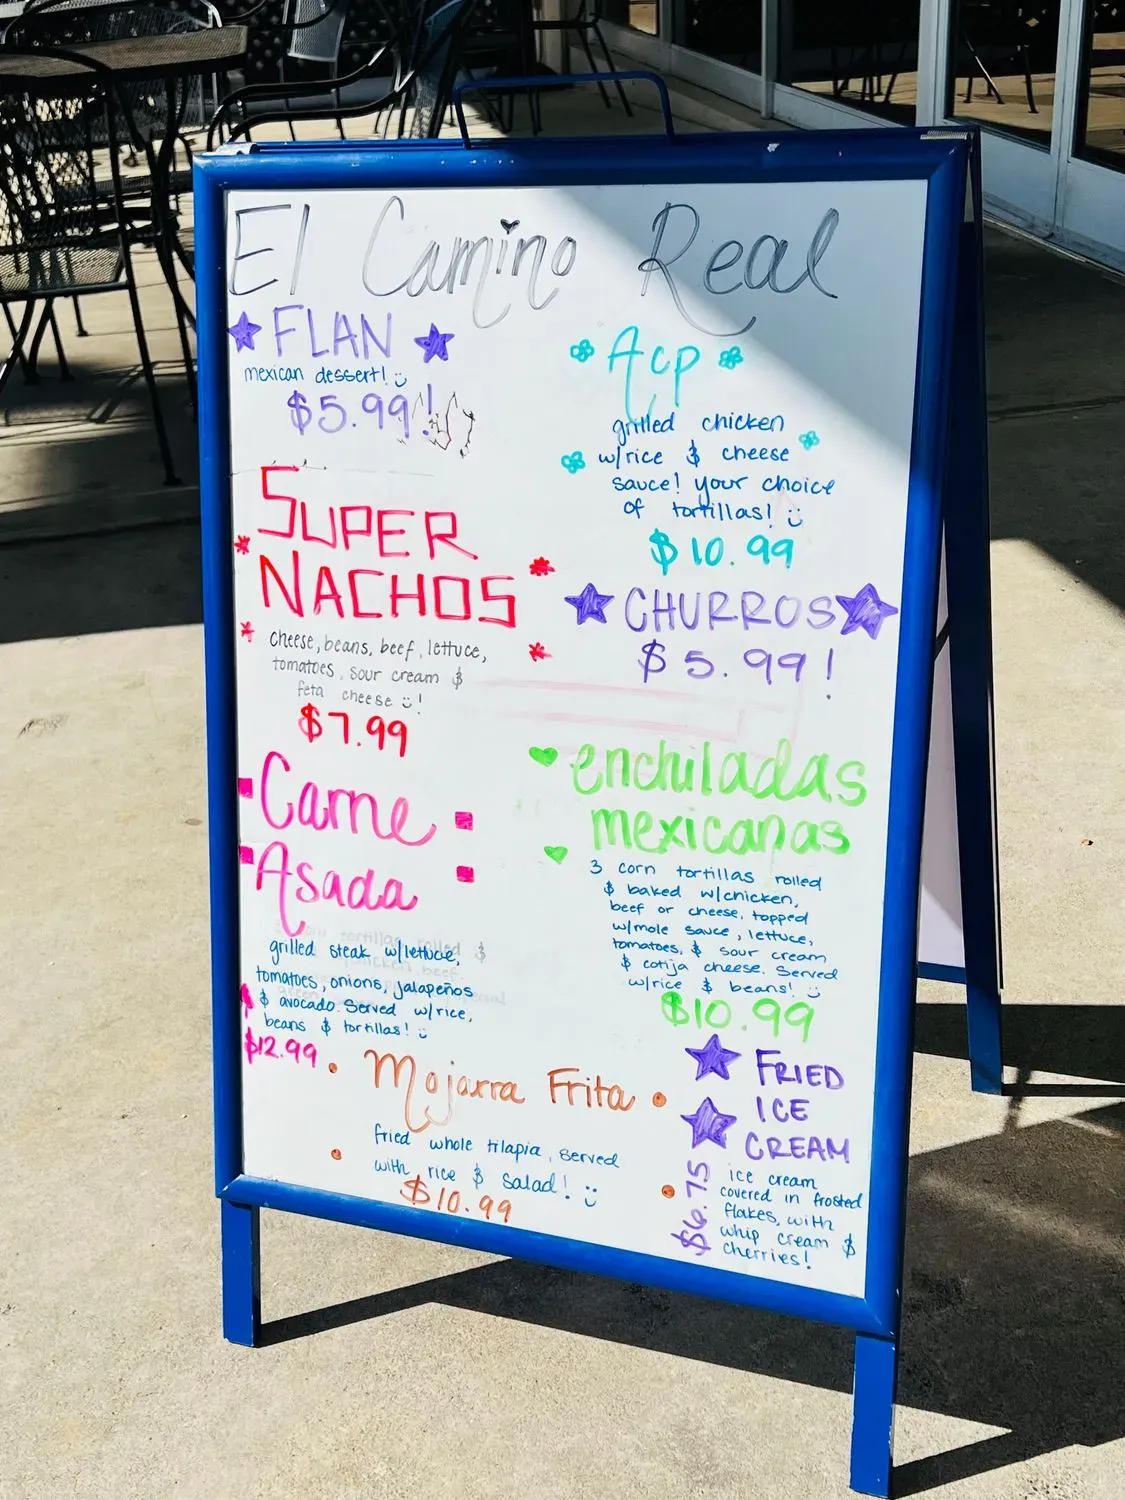 El Camino Real
FLAN
mexican dessert!
$5.99!
SUPER
NACHOS
cheese, beans, beef, lettuce,
tomatoes, sour cream &
feta cheese !
$7.99
Carne
Asada
grilled steak w/lettuce,
tomatoes, onions, jalapeños
& avocado. Served w/rice,
beans & tortillas!
$12.99
Mojarra Frita
fried whole tilapia, served
with rice & salad!
$10.99
Acp
grilled chicken
w/rice & cheese
sauce! your choice
of tortillas!
$10.99
CHURROS
$5.99!
enchiladas
mexicanas
3 corn tortillas rolled
& baked w/chicken,
beef or cheese, topped
w/mole sauce, lettuce,
tomatoes, & sour cream
& cotija cheese. Served
w/rice & beans!
$10.99
FRIED
ICE
CREAM
ice cream
covered in frosted
flakes, with
whip cream &
cherries!
$6.75